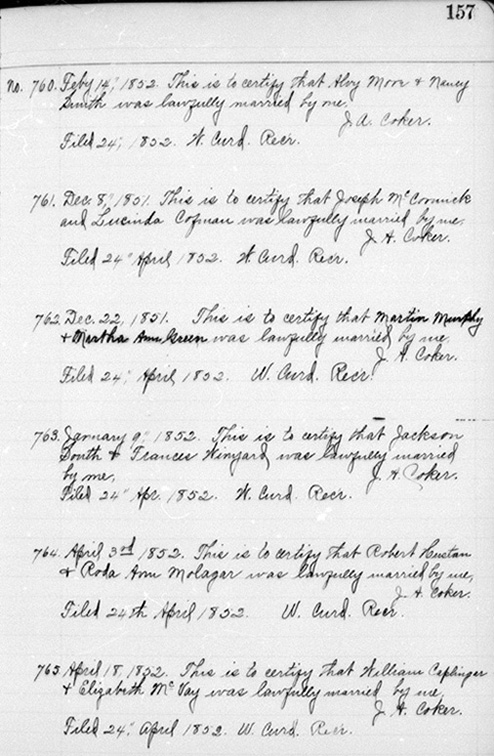 157
No. 760. Feby 14", 1852. This is to certify that Alvy Moor & Nancy
Smith was lawfully married by me.
J. A. Coker.
Filed 24", 1852. W. Curd. Recr.
761. Dec. 8", 1851. This is to certify that Joseph McCormick
and Lucinda Cofman was lawfully married by me.
J. A. Coker.
Filed 24" April 1852. W. Curd. Recr.
762. Dec. 22, 1851. This is to certify that Martin Murphy
& Martha Ann Green was lawfully married by me.
J. A. Coker.
Filed 24", April 1852. W. Curd. Recr.
763. January 9", 1852. This is to certify that Jackson
& Frances was lawfully married
by me, J. A. Coker.
Filed 24" Apr. 1852. W. Curd. Recr.
764. April 3rd 1852. This is to certify that Robert Hustan
& Roda Ann Molagar was lawfully married by me,
J. A. Coker.
Filed 24th April 1852. W. Curd. Recr.
765 April 18, 1852. This is to certify that William Caplinger
& Elizabeth was lawfully married by me,
J. A. Coker.
Filed 24", April 1852. W. Curd. Recr.